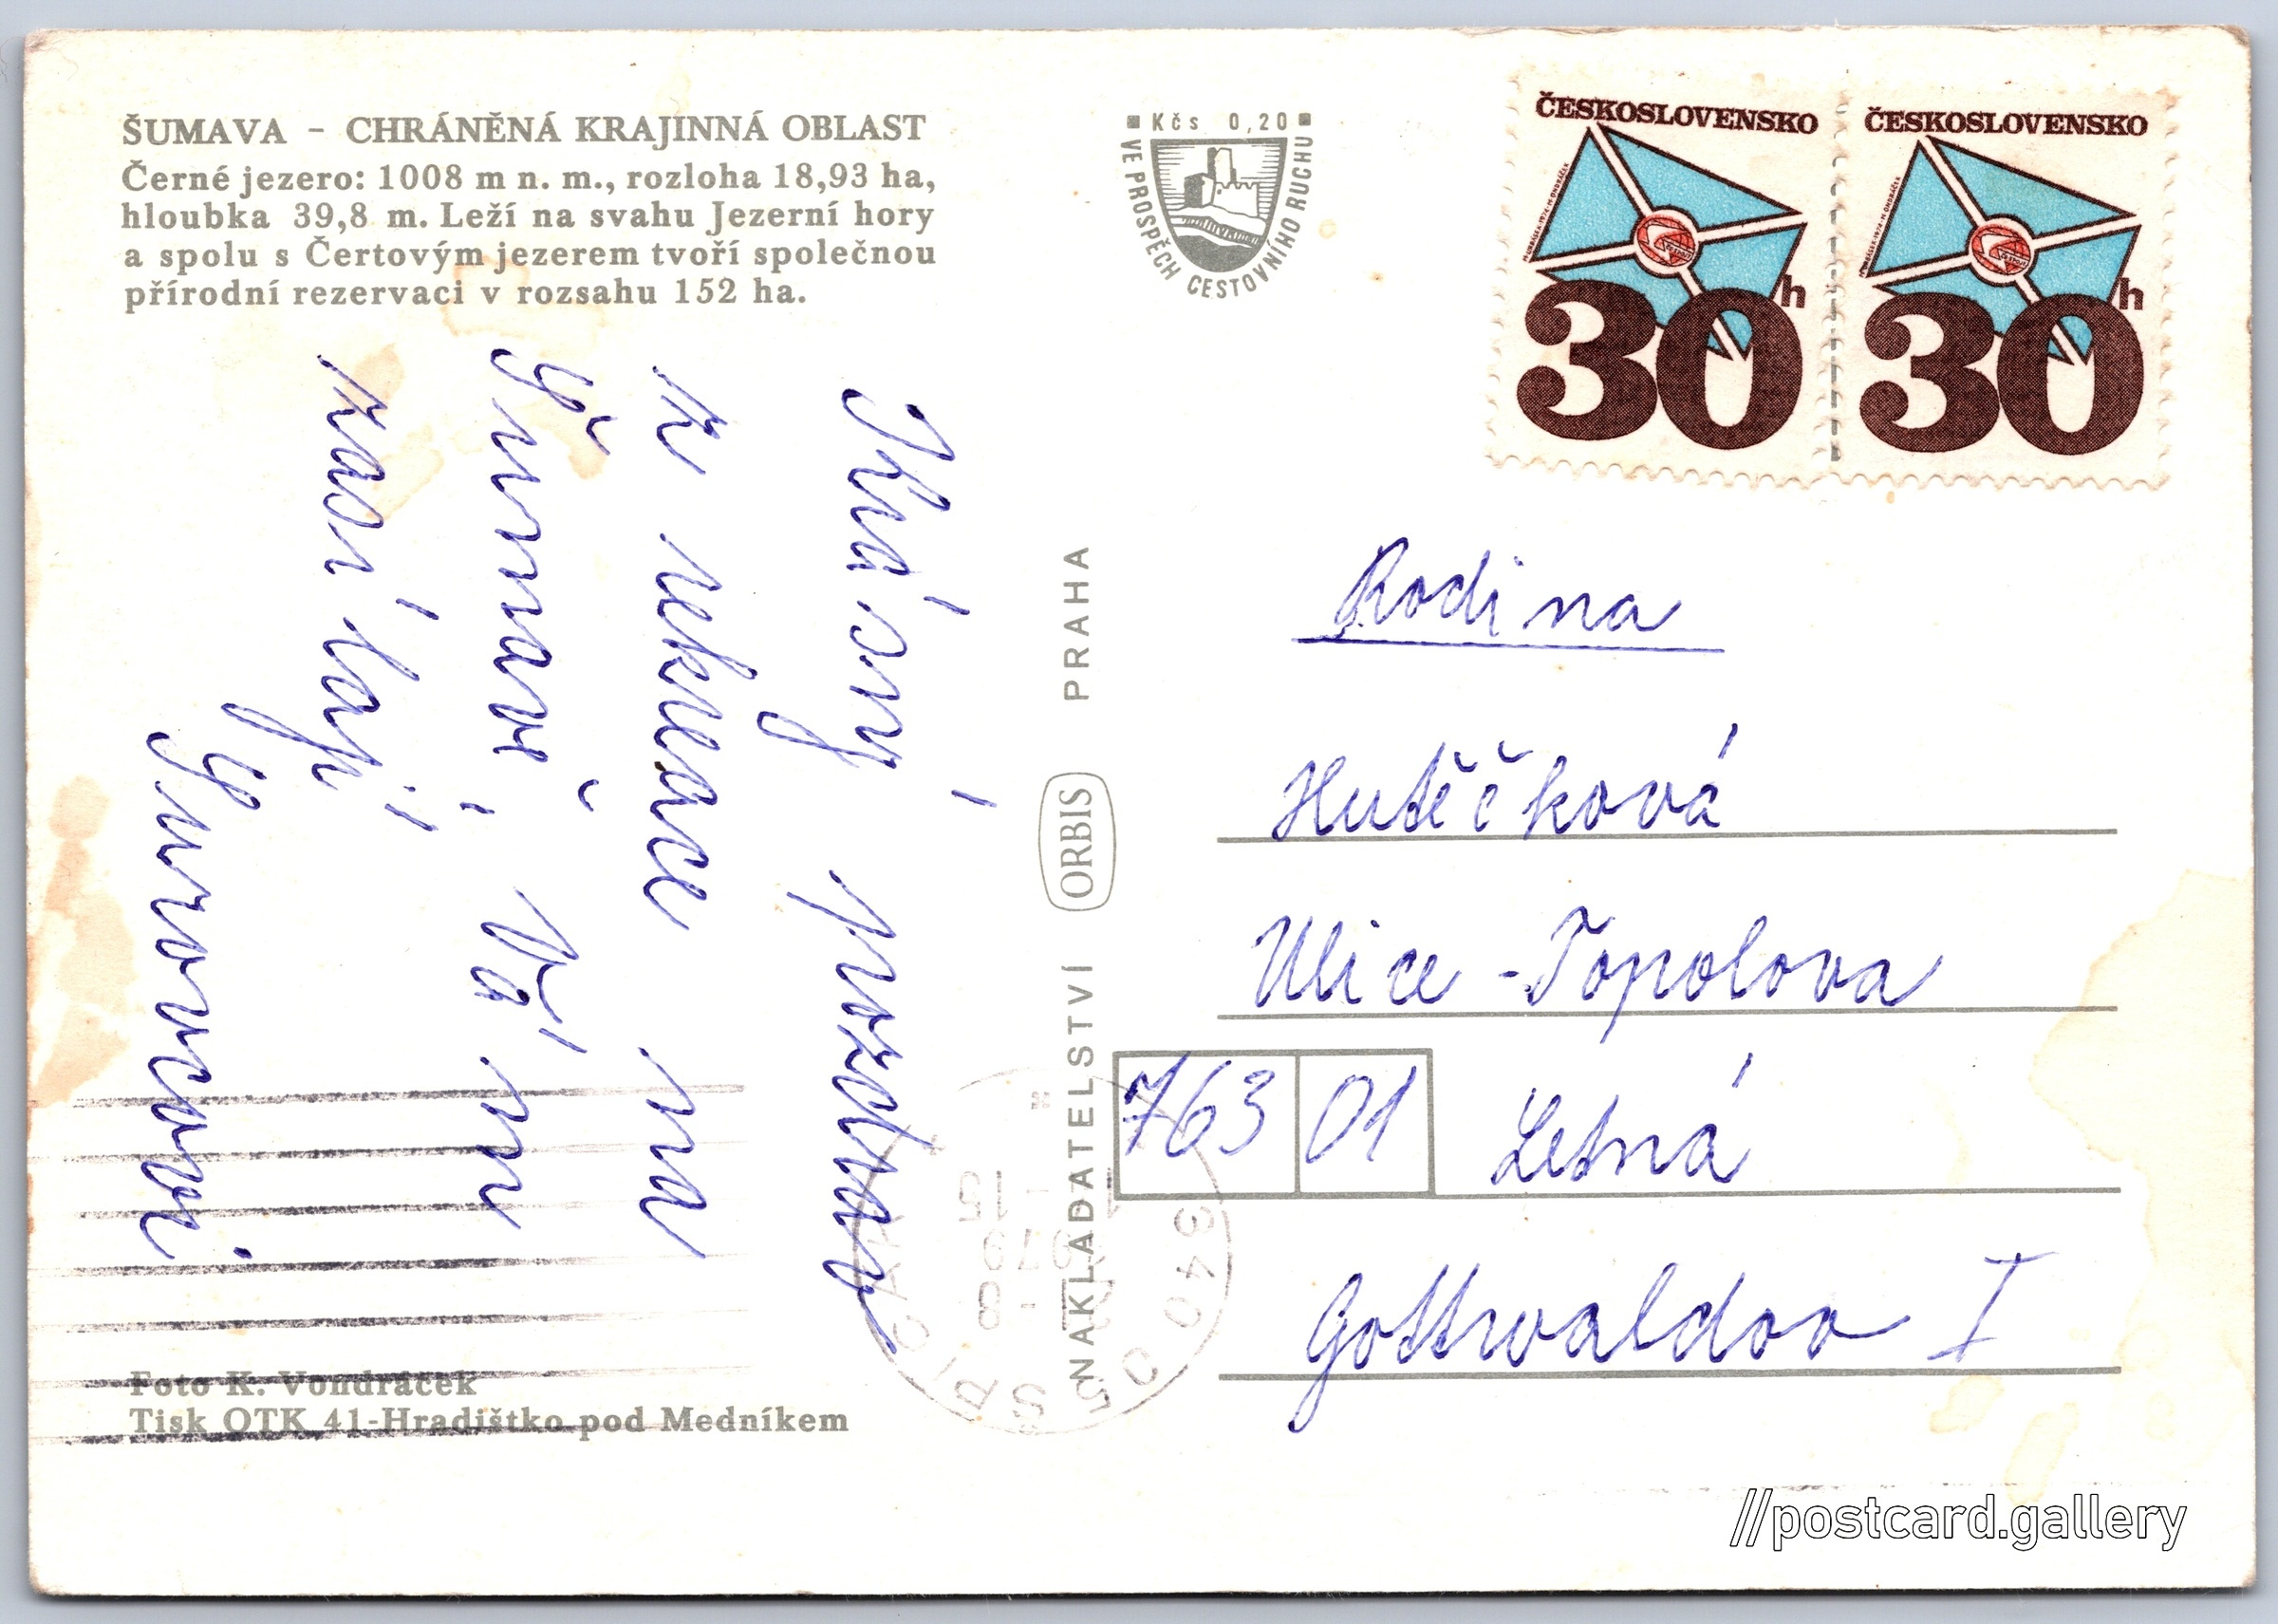 ŠUMAVA - CHRÁNĚNÁ KRAJINNÁ OBLAST
Černé jezero: 1008 m n. m., rozloha 18,93 ha,
hloubka 39,8 m. Leží na svahu Jezerní hory
a spolu s Čertovým jezerem tvoří společnou
přírodní rezervaci v rozsahu 152 ha.
Krásný pozdrav
z rekreace na
Šumavě Vám
zasílají
Surovcovi
Foto K. Vondráček
Tisk OTK 41-Hradištko pod Medníkem
Kčs 0,20
VE PROSPĚCH CESTOVNÍHO RUCHU
NAKLADATELSTVÍ ORBIS PRAHA
ČESKOSLOVENSKO
30h
ČESKOSLOVENSKO
30h
Rodina
Hutěčková
Ulice - Topolova
763 01 Letná
Gottwaldov I
340 05 ŠPIČÁK
//postcard.gallery